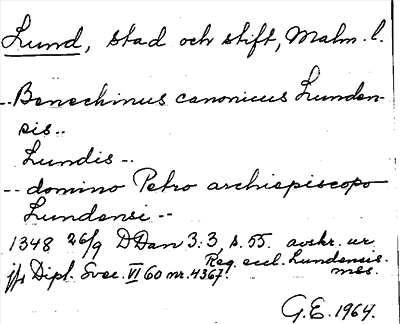 Lund, stad och stift, Malm. l.
--Benechinus canonicus Lunden-
sis--
Lundis--
--domino Petro archiepiscopo
Lundensi--
1348 26/9 DDan 3:3, s. 55. avskr. ur
Reg. eccl. Lundensis
jfr Dipl. Svec. VI 60 nr. 4367. mss.
G.E. 1964.